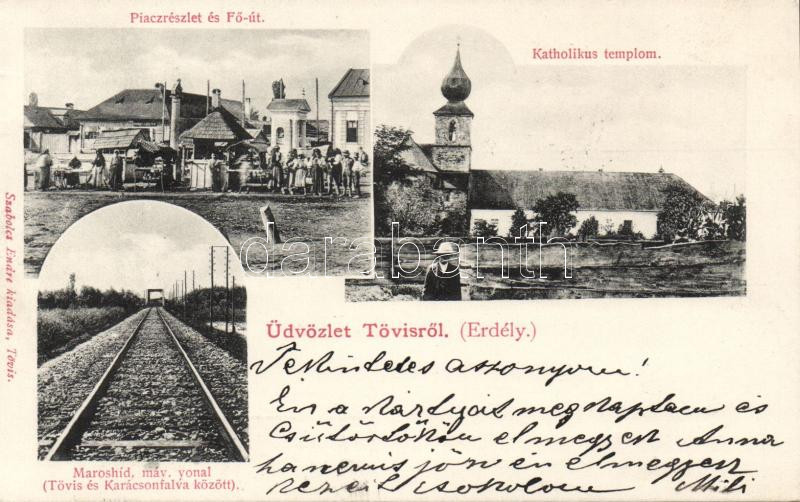 Piaczrészlet és Fő-út.
Katholikus templom.
Szabolcs Endre kiadása, Tövis.
darabanth
Üdvözlet Tövisről. (Erdély.)
Tekintetes asszonyom!
Én a kártyát megkaptam és
Csütörtökön elmegyek Anna
ha nem is jön én elmegyek
csokolom Mili
Maroshíd, máv. vonal
(Tövis és Karácsonfalva között).